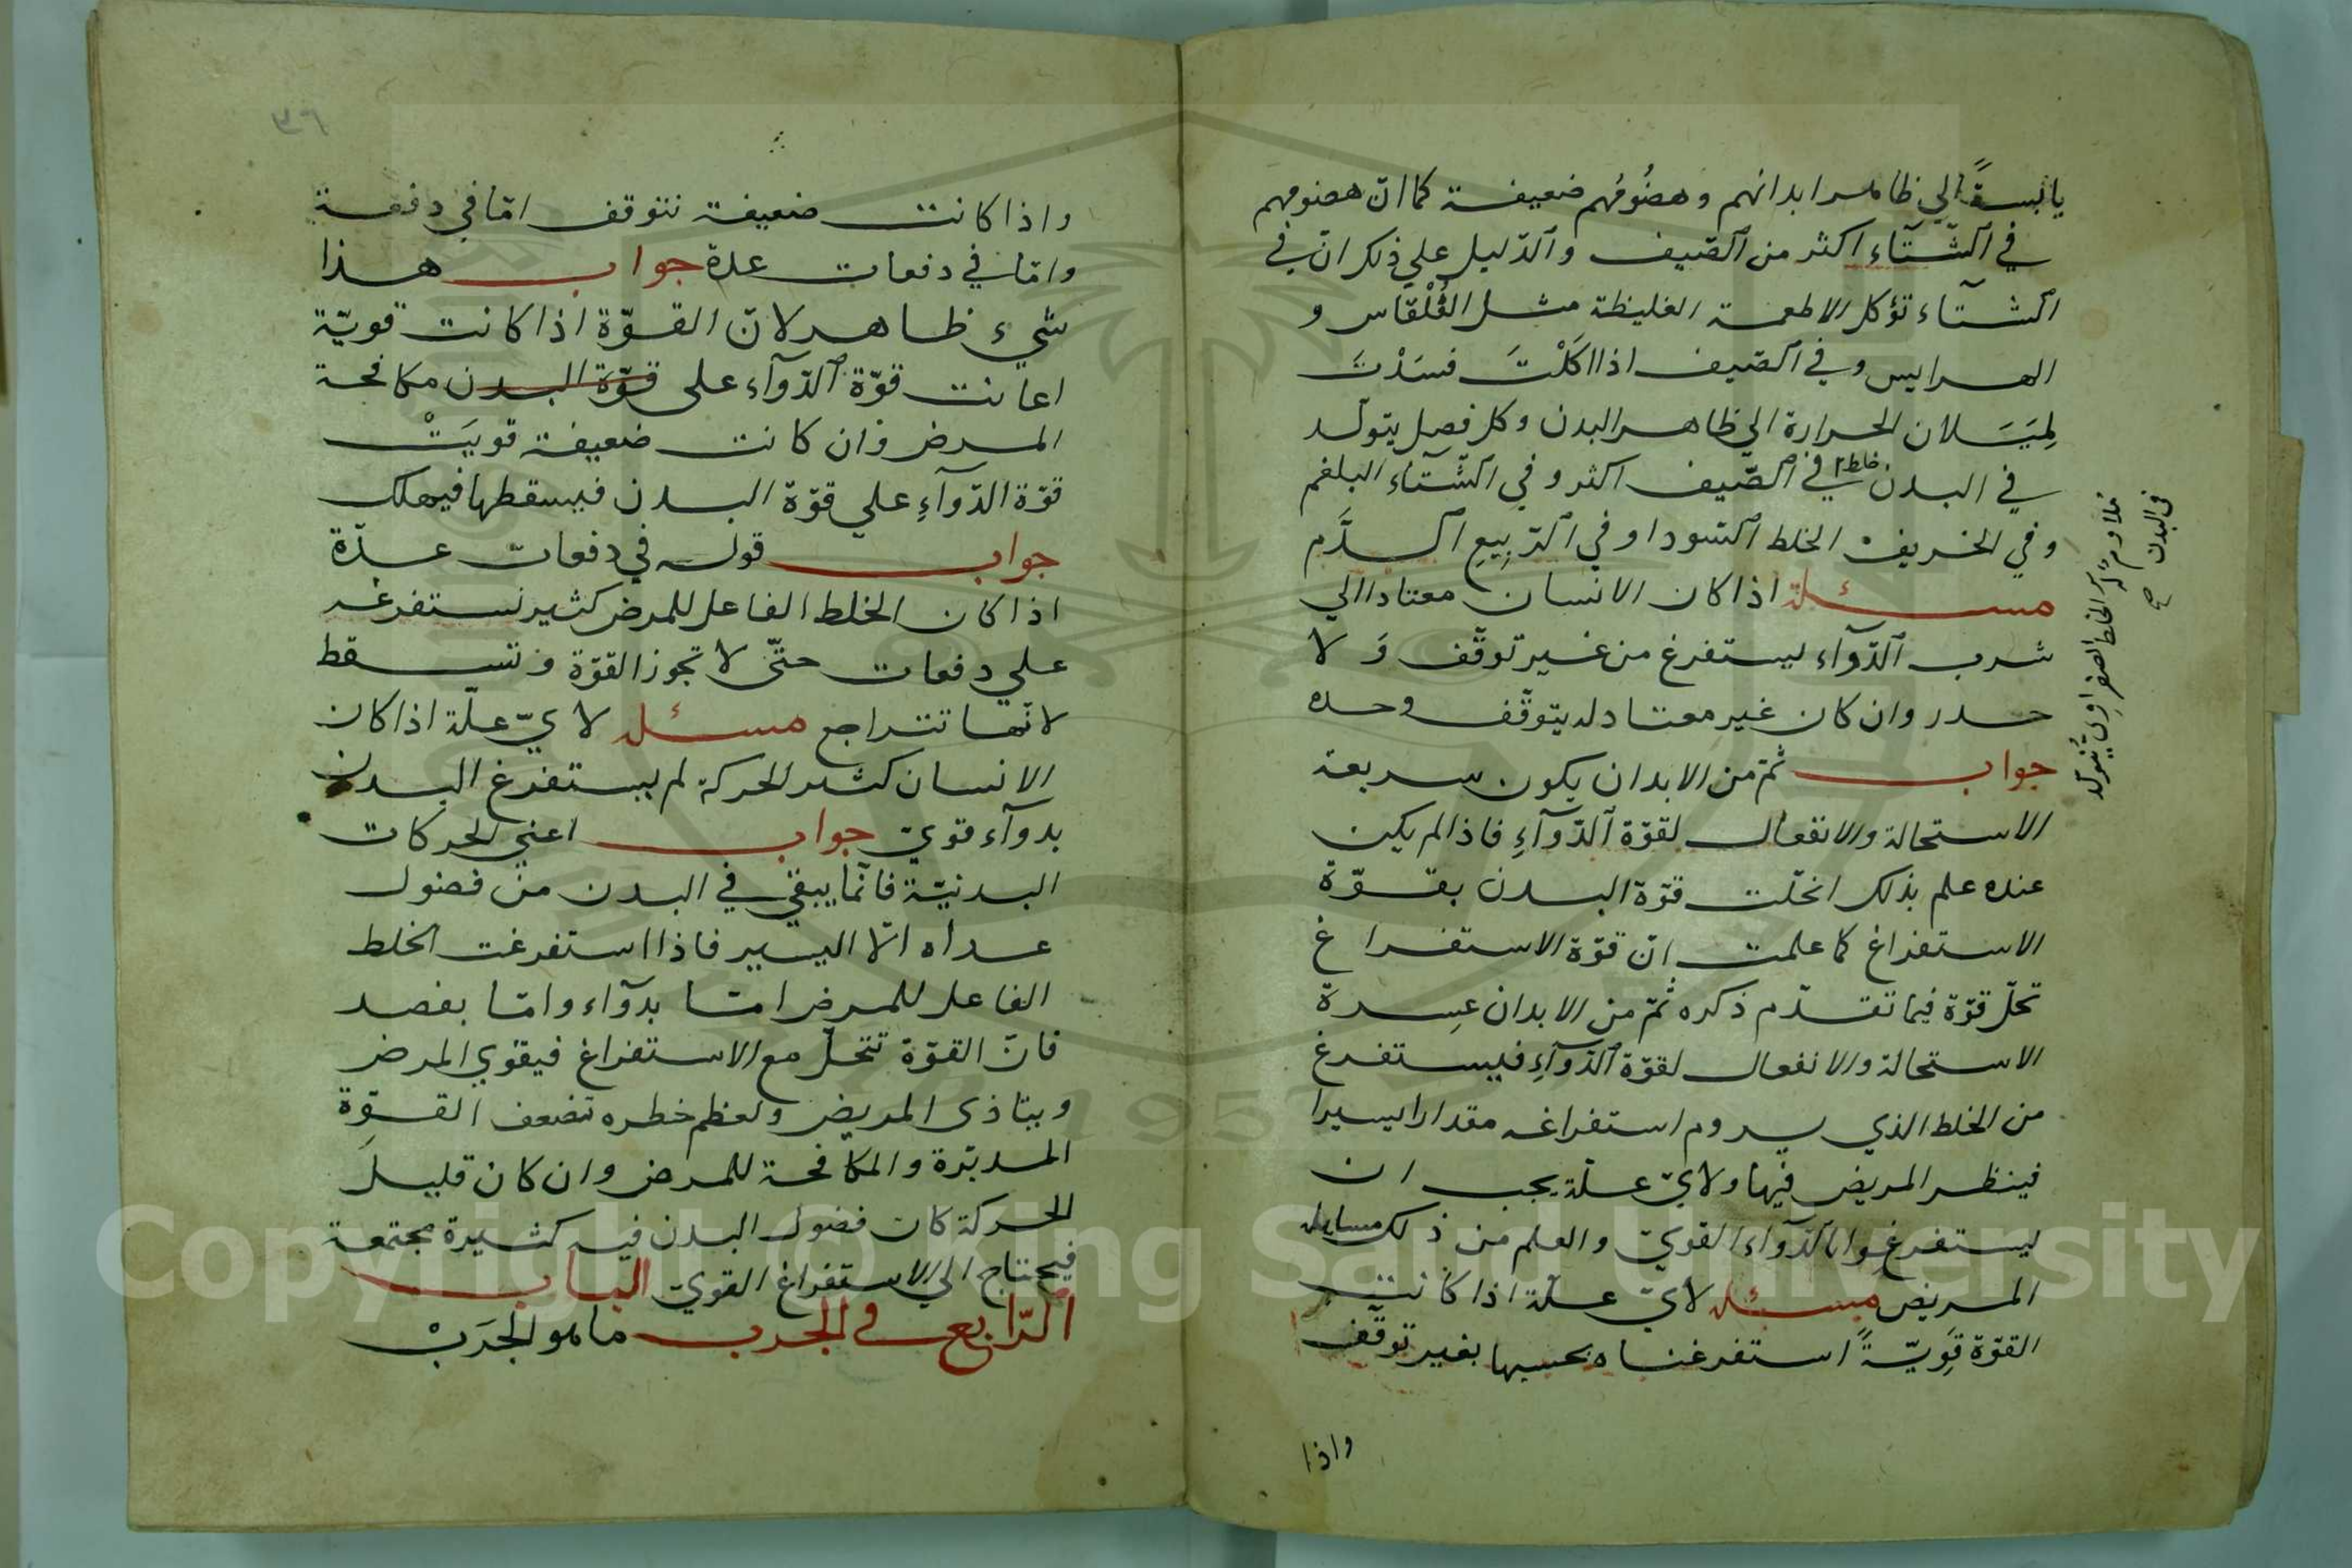 يابسةً الي ظاهر ابدانهم وهضُومُهم ضعيفة كما انّ هضومهم
في الشّتآء اكثر من الصّيف والدّليل علي ذلك انّ في
الشتآء تؤكل الاطعمة الغليظة مثل القُلْقاس و
الهرايس وفي الصّيف اذا اكَلْتَ فسَدْتَ
لِمَيَسَلان الحرارة الي ظاهر البدن وكل فصل يتولّد
في البدن خلط في الصّيف اكثر وفي الشّتآء البلغم
وفي الخريف الخلط السّودا وفي الرّبِيعِ الدَّم
مسئلة اذا كان الانسان معتادا الي
شرب الدّوآء ليستفرغ من غير توقّف وَ لا
حدر وان كان غير معتاد له يتوقّف وحده
جواب ثمّ من الابدان يكون سريعة
الاستحالة والانفعال لقوّة الدّوآءِ فاذا لم يكن
عنده علم بذلك انحلّت قوّة البدن بقوّة
الاستفراغ كما علمت انّ قوّة الاستفراغ
تحلّ قوّة فيما تقدّم ذكره ثمّ من الابدان عسِرة
الاستحالة والانفعال لقوّة الدّوآءِ فيستفرغ
من الخلط الذي يروم استفراغه مقدارا يسيرا
فينظر المريض فيها ولايّ علّة يجب ان
يستفرغوا بالدّوآء القويّ والعلم من ذلك مسايله
المريض مسئله لايّ علّة اذا كانت
القوّة قَوِيّةً استفرغناه بحسبها بغير توقّف
واذا
الخلط الصفراوى يتولد
في البدن صح
٣٦
واذا كانت ضعيفة نتوقف امّا في دفعة
وامّا في دفعات عدة جواب هذا
شيء ظاهر لانّ القوّة اذا كانت قويّة
اعانت قوّة الدّوآء على قوّة البدن مكافحة
المرض وان كانت ضعيفة قويَتْ
قوّة الدّوآءِ علي قوّة البدن فيسقطها فيهلك
جواب قوله في دفعات عدّة
اذا كان الخلط الفاعل للمرض كثير نستفرغه
علي دفعات حتّى لا تجوز القوّة وتسقط
لانّها تتراجع مسئله لايّ علّة اذا كان
الانسان كثير الحركة لم يستفرغ البدن
بدوآء قويّ جواب اعني الحركات
البدنيّة فانّما يبقي في البدن من فضول
عداه الّا اليسير فاذا استفرغت الخلط
الفاعل للمرض امّا بدوآء وامّا بفصد
فانّ القوّة تنحلّ مع الاستفراغ فيقوي المرض
ويتاذى المريض ولعظم خطره تضعف القوّة
المدبّرة والمكافحة للمرض وان كان قليل
الحركة كان فضول البدن فيه كثيرة مجتمعة
فيحتاج الي الاستفراغ القويّ الباب
الرّابع في الجرب ما هو الجرَبْ
Copyright © King Saud University
195